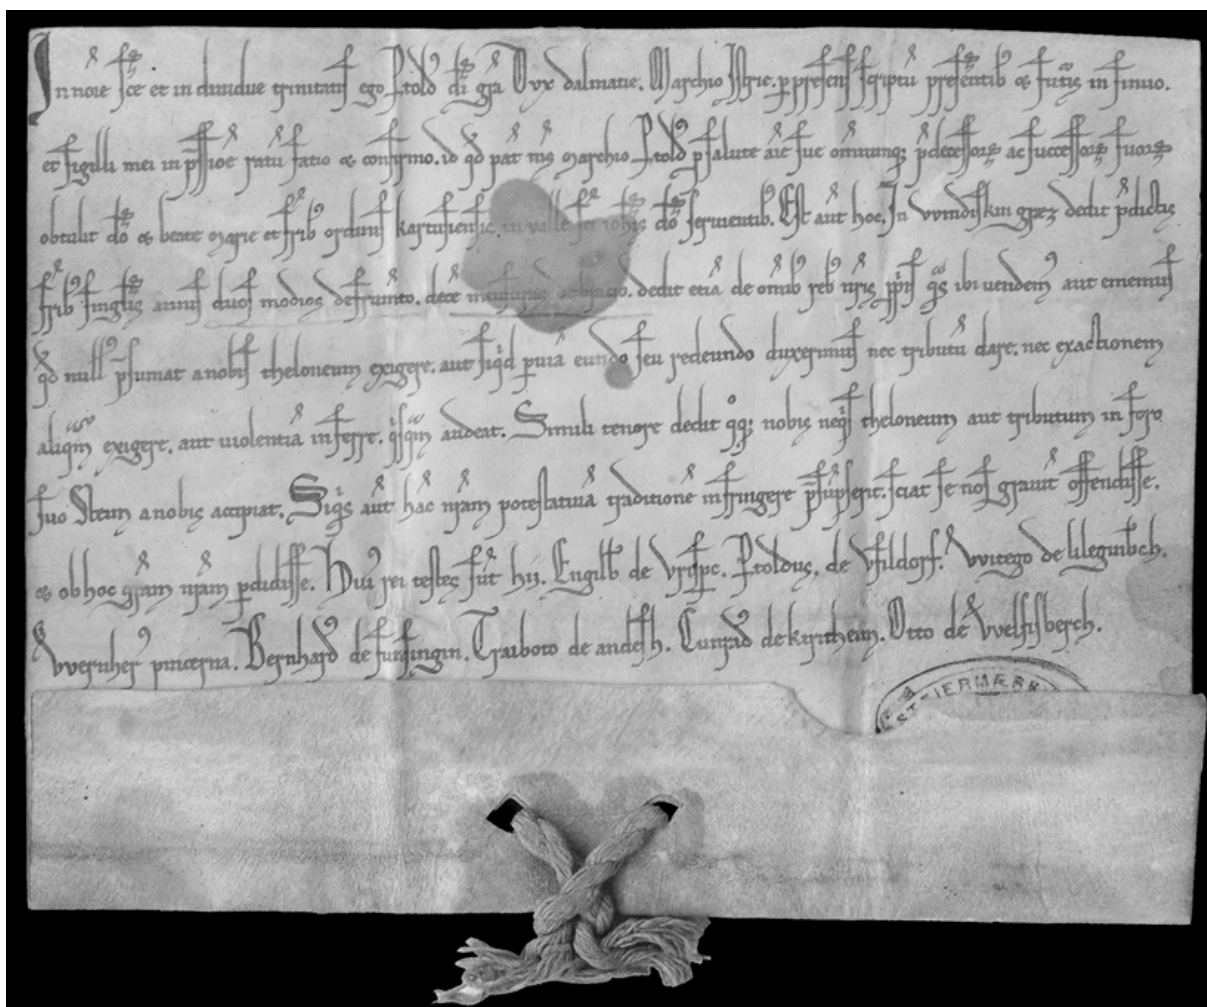 In noıe sce et in diuidue trinitatis ego Ptold' di gra Dux dalmatie. Marchio Istrie. p presens scriptu presentib & futis in sinuo.
et sigilli mei in pssioe ratu facio & confirmo. id qd pat ms marchio Ptold' p salute aie sue omiumq; pdecessoꝝ ac successoꝝ suoꝝ
obtulit do & beate marie et frib ordinis kartusiensis in ualle sci iohis do seruientib. Est aut hoc. In vvindiskin grez dedit pdictis
frib singlis annis duos modios de frumto. dece mensuras dedit etia de omib reb nris ppiis qs ibi uendem aut ememus
qd null psumat a nobis theloneum exigere. aut siqd p uia eundo seu redeundo duxerimus nec tributu dare. nec exactionem
aliqm exigere. aut uiolentia inferre. qsqm audeat. Simili tenore dedit qq; nobis neqs theloneum aut tributum in foro
suo Stein a nobis accipiat. Siqs aut hac nram potestatiua traditione infringere psupserit. sciat se nos grauit offendisse.
& ob hoc gram nram pdidisse. Hui rei testes sut hij. Engilb de Ptoldus, de Vfildorf. VVitego de
VVernher pincerna. Bernhard de fursingin. Traiboto de andesh. Cunrad de kiricheim. Otto de VVelfisberch.
STEIERMÆRK